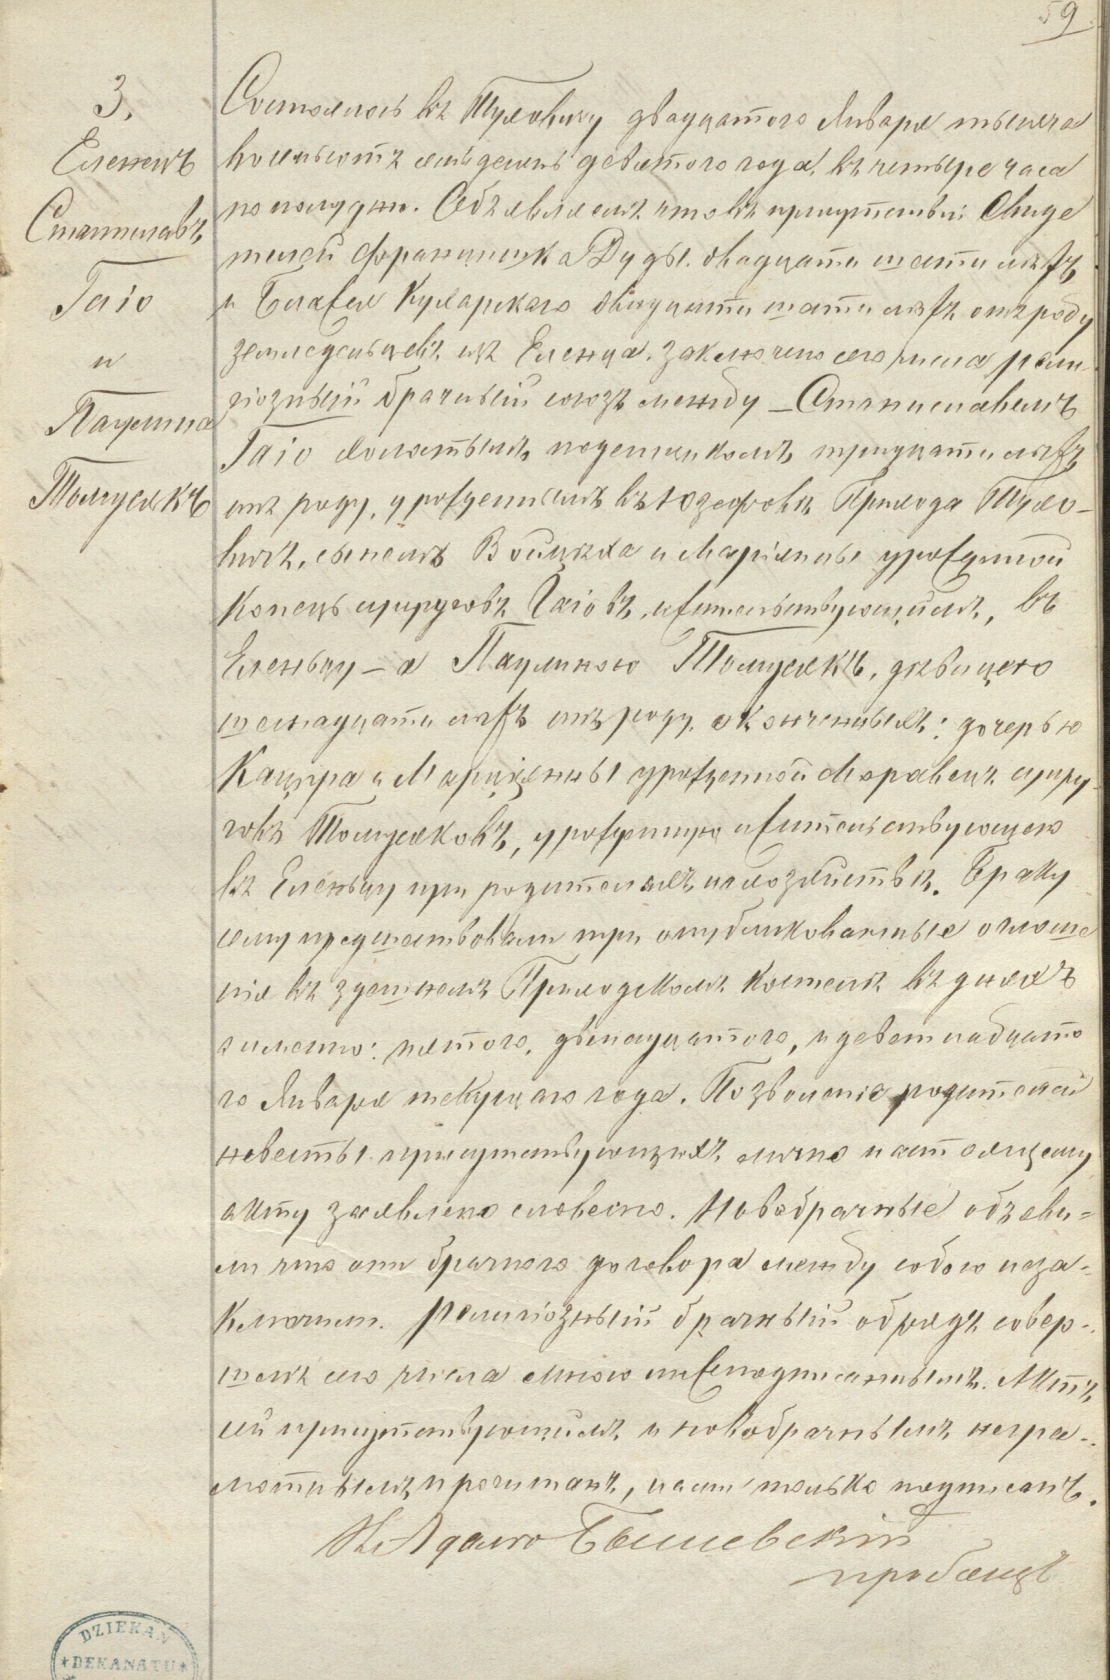 59
3.
Еленецъ
Станиславъ
Гаіо
и
Паулина
Томусякъ
Состоялось въ Туховичу двадцатого Января тысяча
восемьсотъ семьдесять девятого года, въ четыре часа
по полудню. Объявляемъ что въ присутствіи Свиде
телей Францишка Дуды двадцати шести лѣтъ
и Блажея Кухарскаго двадцати шести лѣтъ отъ роду
земледельцевъ изъ Еленца, заключено сего числа рели-
гіозный брачный союзъ между – Станиславемъ
Гаіо холостымъ поденщикомъ тридцати лѣтъ
отъ роду, урожденнымъ въ Юзефовѣ Прихода Тухо-
вичъ, сыномъ Войцѣха и Маріянны урожденной
Конецъ супруговъ Гаіовъ, жительствующимъ, въ
Еленьцу – а Паулиною Томусякъ, дѣвицею
шестнадцати лѣтъ отъ роду оконченныхъ: дочерью
Кацпра и Марціянны урожденной Моравецъ супру-
говъ Томусяковъ, урожденную и жительствующею
въ Еленьцу при родителяхъ на хозяйствѣ. Браку
сему предшествовали три опубликованные оглаше
нія въ здешнемъ Приходскомъ Костелѣ въ дняхъ
а именно: пятого, двенадцатого, и девятнадцато
го Января текущаго года. Позволеніе родителей
невесты присутствующихъ лично настоящему
акту заявлено словесно. Новобрачные объяви-
ли что они брачного договора между собою неза-
ключили. Религіозный брачный обрядъ совер-
шенъ сего числа мною нижеподписаннымъ. Актъ
сей присутствующимъ и новобрачнымъ негра-
мотнымъ прочитанъ, нами только подписанъ.
Кс. Адамъ Башевскій
пробощъ
DZIEKAN
DEKANATU